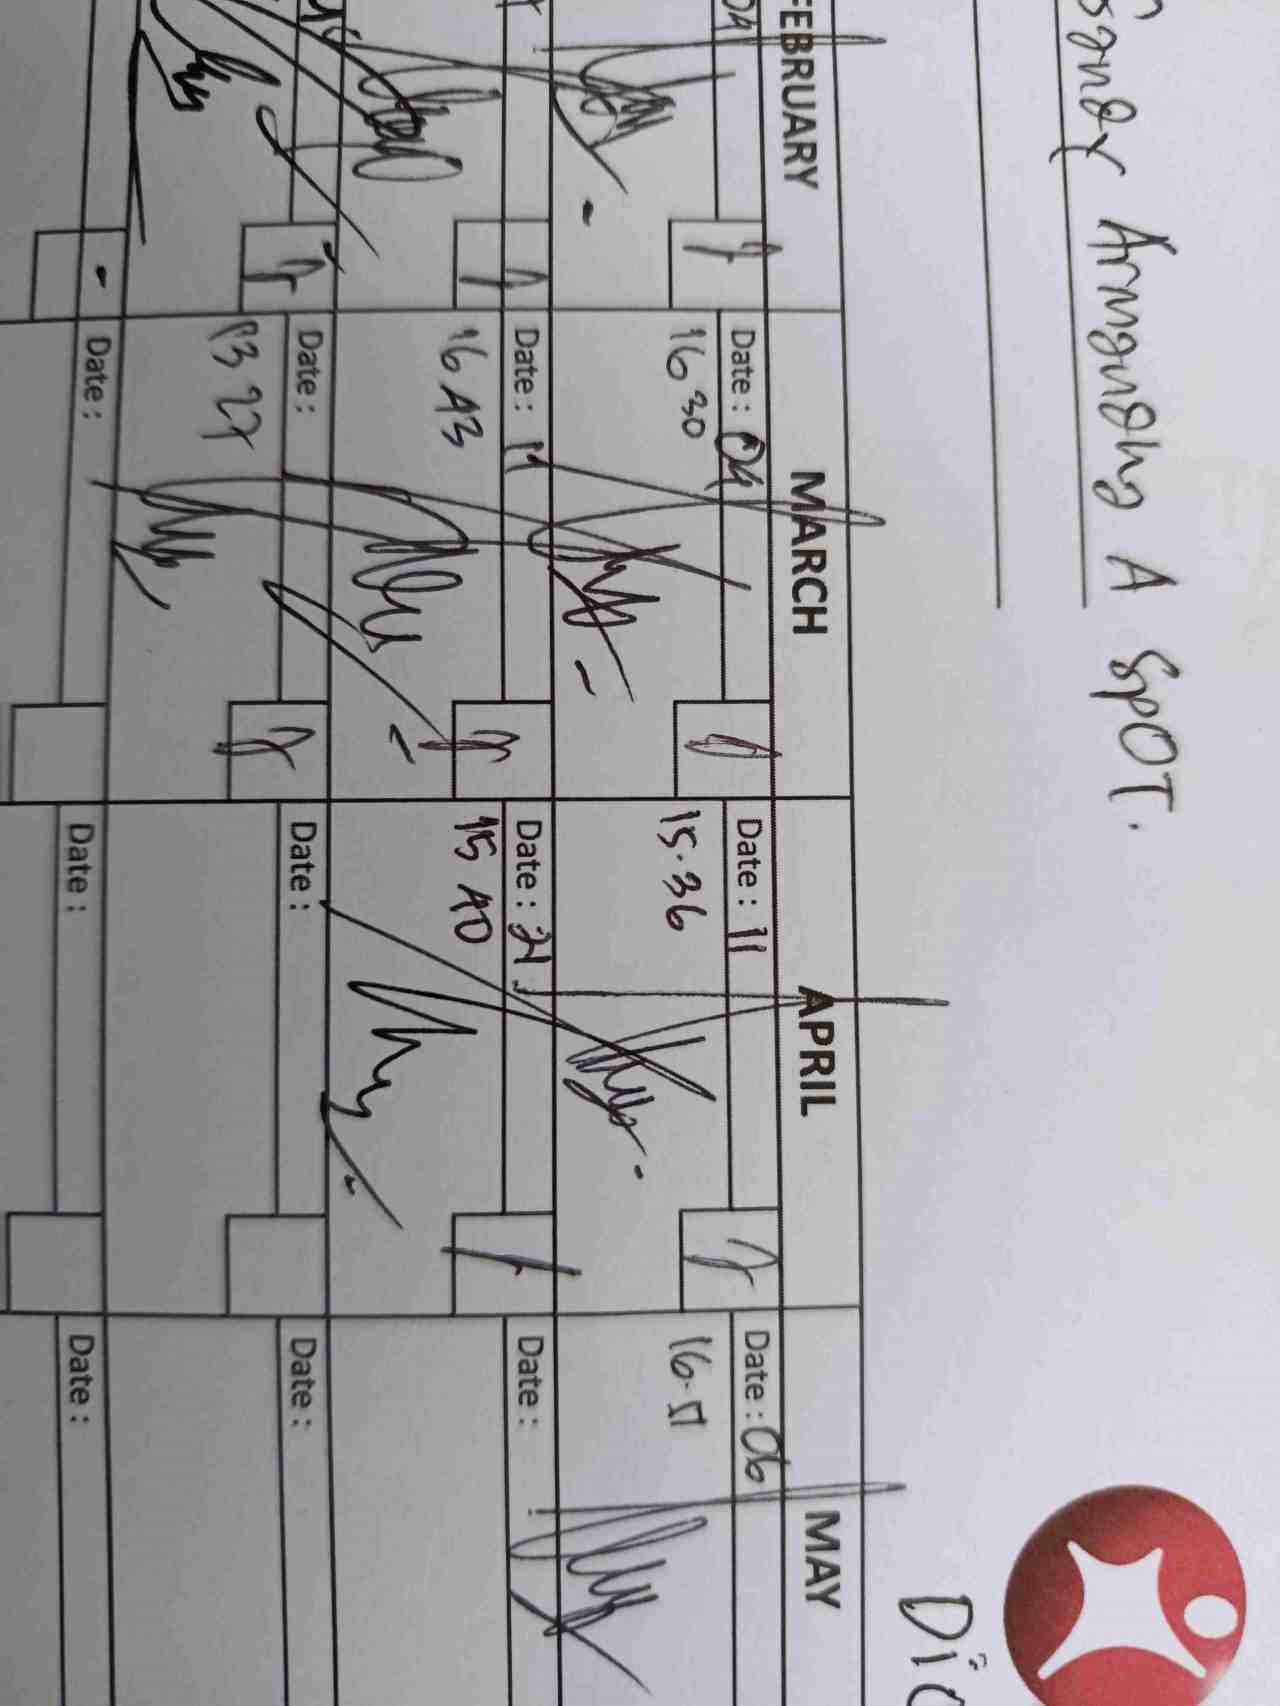 Sandy Armandhy A SPOT.
FEBRUARY MARCH APRIL MAY
04 Date : 04 Date : 11 Date : 06
16 30 15.36 16.51
Date : 11 Date : 21 Date :
16 43 15 40
Date : Date : Date :
13 27
Date : Date : Date :